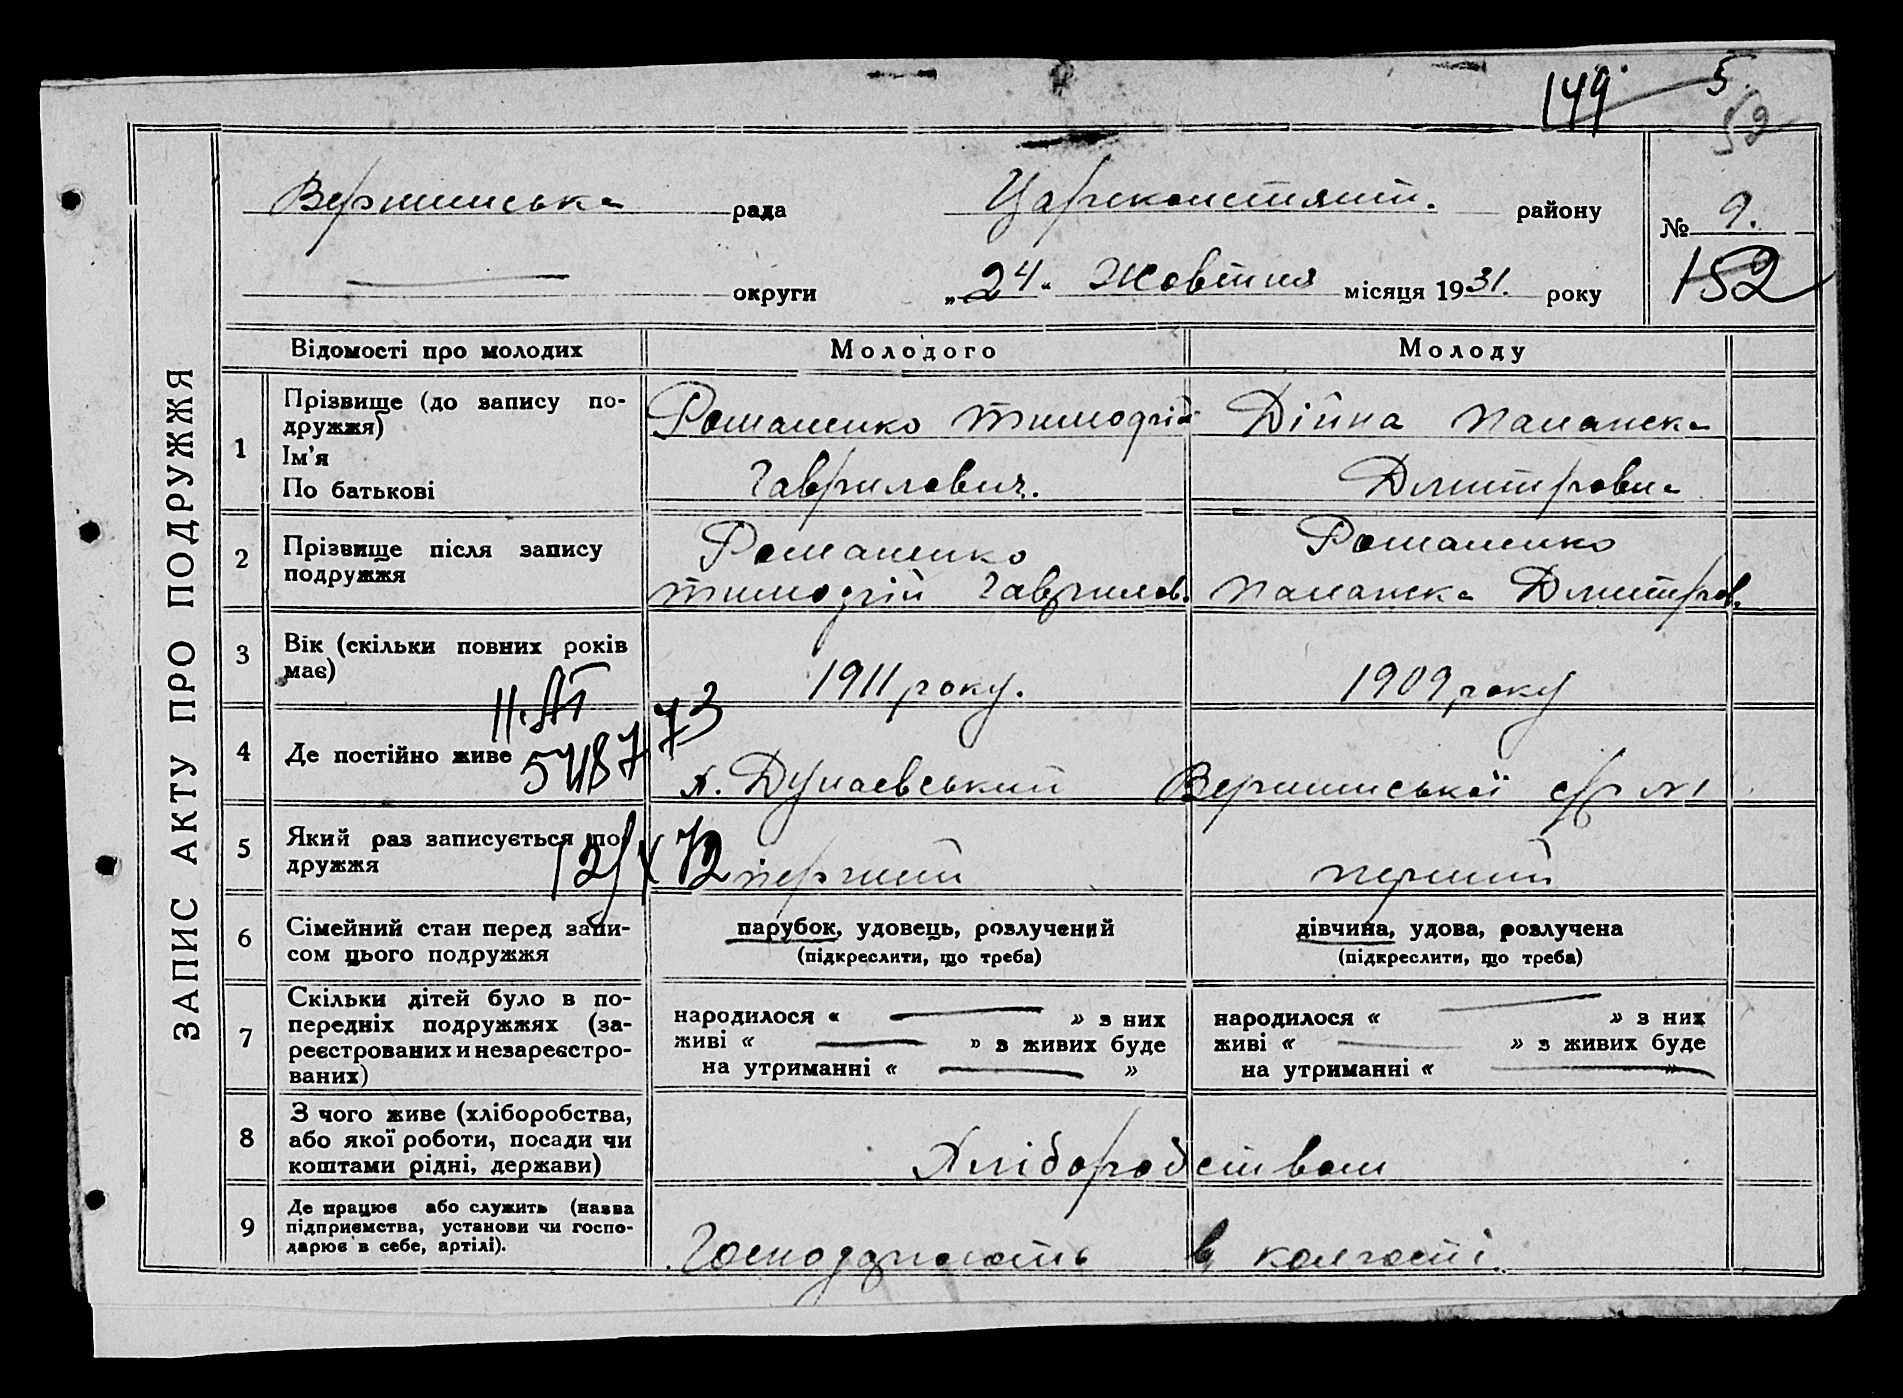 149 5
52
Вершинська рада Цареконстянт. району № 9.
округи „24“ Жовтня місяця 1931. року 152
ЗАПИС АКТУ ПРО ПОДРУЖЖЯ
Відомості про молодих Молодого Молоду
1 Прізвище (до запису по-
дружжя)
Ім'я
По батькові
Романенко Тимофій
Гаврилович.
Дійна Панаска
Дмитровна
2 Прізвище після запису
подружжя
Романенко
Тимофій Гаврилов.
Романенко
Панаска Дмитров.
3 Вік (скільки повних років
має)
1911 року.
1909 року
4 Де постійно живе
х. Дунаєвський
Вершинської с/р №1
73
5 Який раз записується по-
дружжя
перший
перший
72
6 Сімейний стан перед запи-
сом цього подружжя
парубок, удовець, розлучений
(підкреслити, що треба)
дівчина, удова, розлучена
(підкреслити, що треба)
7 Скільки дітей було в по-
передніх подружжях (за-
реєстрованих и незареєстро-
ваних)
народилося « » з них
живі « » з живих буде
на утриманні « »
народилося « » з них
живі « » з живих буде
на утриманні « »
8 З чого живе (хліборобства,
або якої роботи, посади чи
коштами рідні, держави)
Хліборобством
9 Де працює або служить (назва
підприємства, установи чи госпо-
дарює в себе, артілі).
Господарюють в колгоспі.